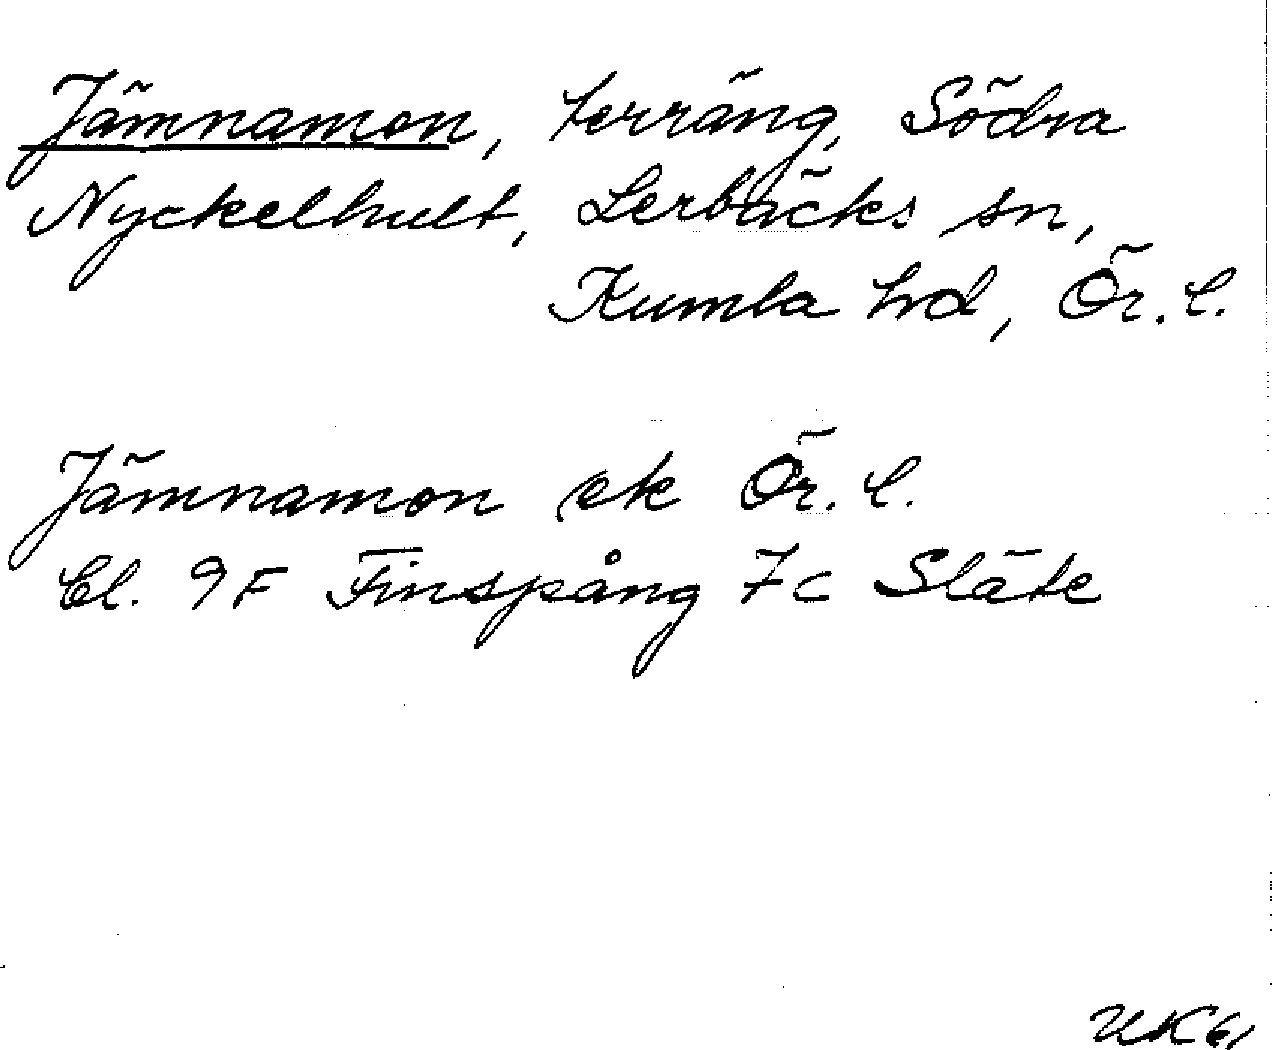 Jämnamon, terräng, Södra
Nyckelhult, Lerbäcks sn,
Kumla hd, Ör. l.
Jämnamon ek Ör. l.
bl. 9F Finspång 7c Släte
UK 61